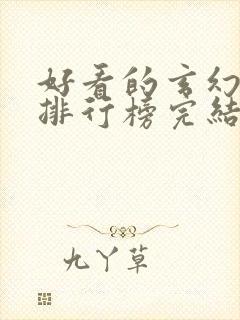 好看的玄幻
排行榜完结
九丫草